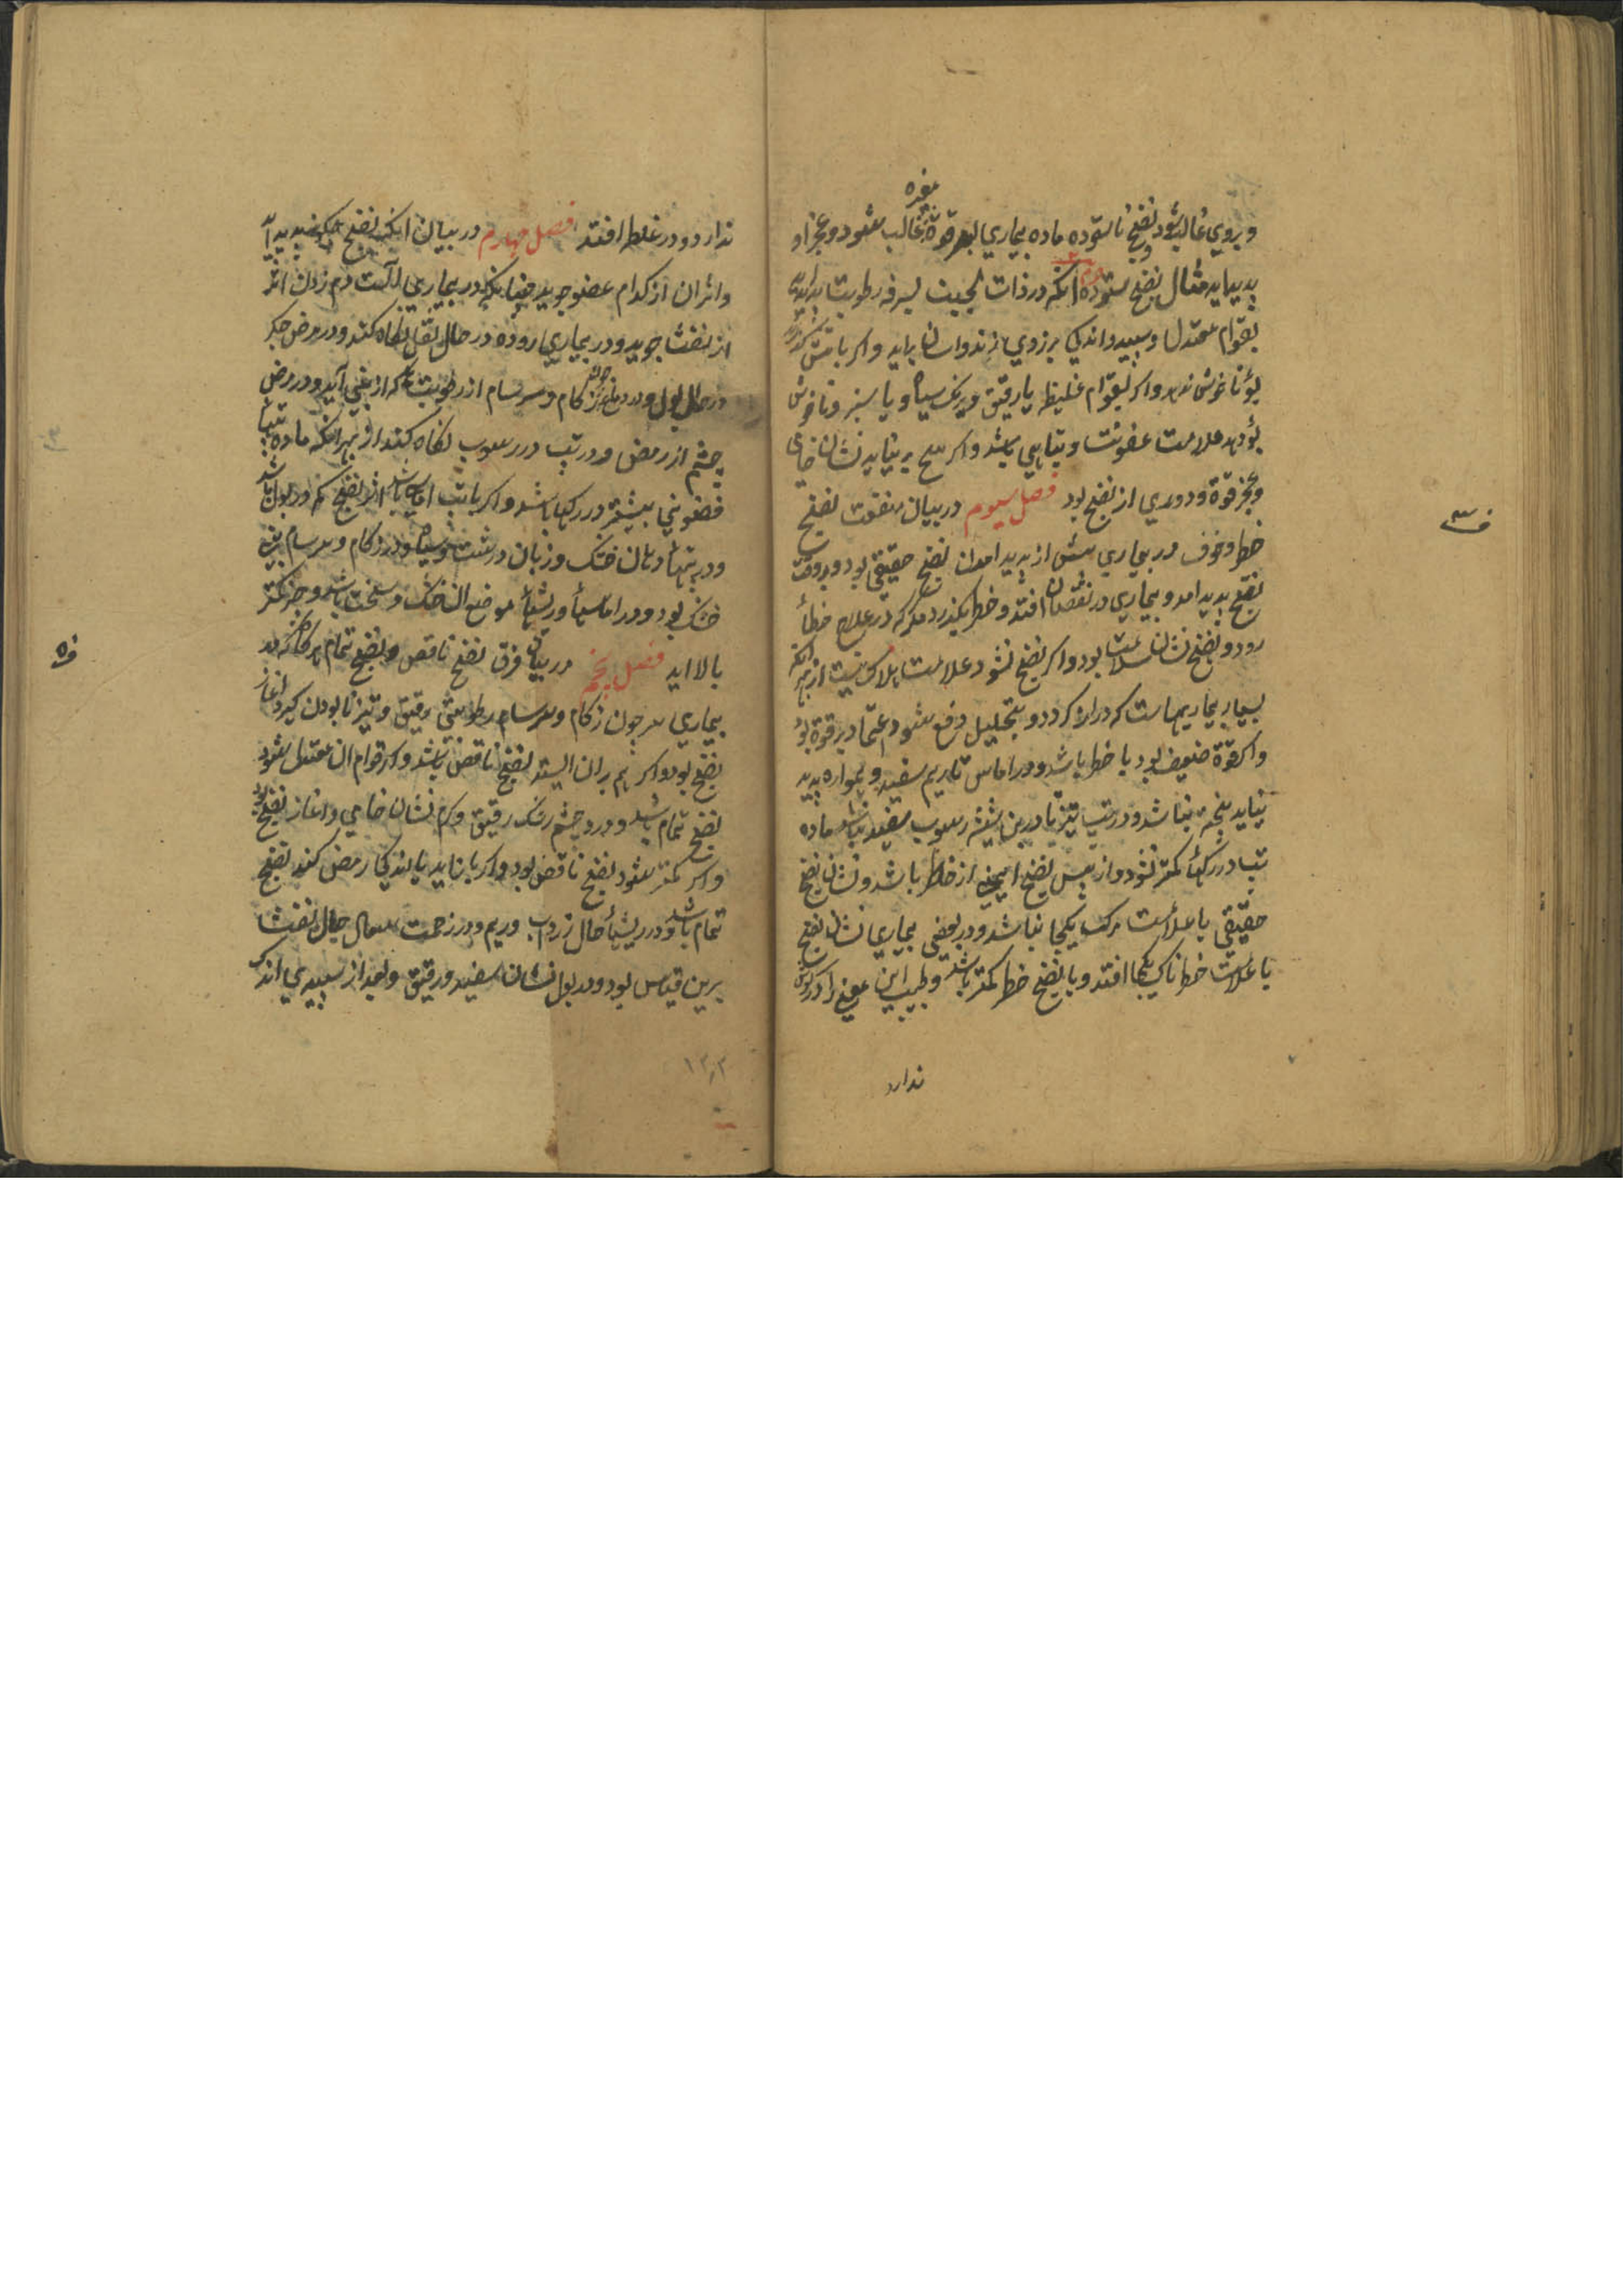 و بروی غالب شود نضج ناستوده ماده بیماری بر قوة غالب شود و عجز او
غیره
پدید اید مثال نضج ستوده انکه در ذات الجنب بسرفه رطوبت براید
بقوام معتدل و سپید و اندکی بزردی زند و اسان براید و اکر باتش
بوئ ناخوش ندهد و اکر بقوام غلیظ یا رقیق و برنک سیاه و یا سبز و ناخوش
بوئ دهد علامت عفونت و تباهی باشد و اکر هیچ بر نیاید نشان خامی
و عجز قوة و دوری از نضج بود فصل سیوم در بیان منفعت نضج
خطر و خوف در بیماری پیش از پدید امدن نضج حقیقی بود و هر وقت
نضج پدید امد و بیماری در نقصان افتد و خطر بکذرد مکر که در علاج خطأ
رود و نضج نشان سلامت بود و اکر نضج نشود علامت هلاک نیست از بهر انکه
بسیار بیماریهاست که دراز کردد و بتحلیل دفع شود و اعتماد بر قوة بود
و اکر قوة ضعیف بود با خطر باشد و در اماس تا ریم سفید و هموار پدید
نیاید پخته نباشد و در تب تیز تا در بن شیشه رسوب سفید نباشد ماده
تب در رکها کمتر نشود و از پس نضج ایمنی از خطر باشد و نشان نضج
حقیقی با علامت مرکب یکجا نباشد و در بعضی بیماری نشان نضج
با علامت خطرناک یکجا افتد و با نضج خطر کمتر باشد و طبیب این معنی را در کوش
ندارد
ف ۳
ندارد و در غلط افتد فصل چهارم در بیان انکه نضج چکونه پدید آید
و اثر ان از کدام عضو جوید چنانکه در بیماری الت دم زدن اثر
از نفث جوید و در بیماری روده در حال ثفل نکاه کند و در مرض جکر
در حال بول و در دماغ چون زکام و سرسام از رطوبت که از بینی آید و در مرض
چشم از رمص و در تب در رسوب نکاه کند از بهر انکه ماده تبها
عفونی بیشتر در رکها باشد و اکر با تب اماس باشد اثر نضج هم در بول باشد
و در تبها دهان خشک و زبان درشت و سیاه و در زکام و سرسام بینی
خشک بود و در اماسها و ریشها موضع ان خشک و سخت باشد و چرک کمتر
بالا اید فصل پنجم در بیان فرق نضج ناقص و نضج تمام هرکاه که در
بیماری سر چون زکام و سرسام رطوبتی رقیق و تیز پالودن کیرد اغاز
نضج بود و اکر هم بران ایستد نضج ناقص باشد و اکر قوام ان معتدل شود
نضج تمام باشد و در درد چشم اشک رقیق و کرم نشان خامی و اغاز نضج بود
و اکر کمتر شود نضج ناقص بود و اکر باز اید یا اندکی رمص کند نضج
تمام باشد و در ریشها حال زرداب و ریم و در زحمت سعال حال نفث
برین قیاس بود و در بول نشان سفید و رقیق و بعد از سپیدی اندک
ف ۵
۱۳۲